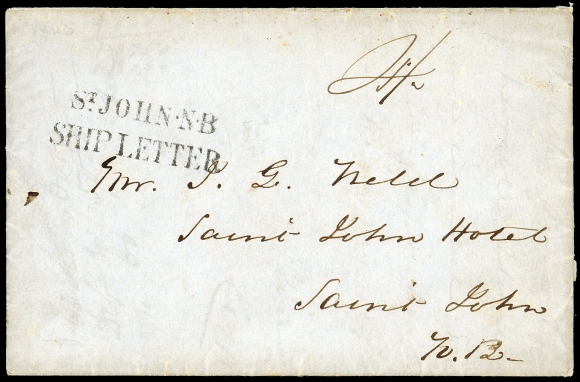 ST JOHN·N·B
SHIP LETTER
Mr. J. G. Nebel
Saint John Hotel
Saint John
N.B-